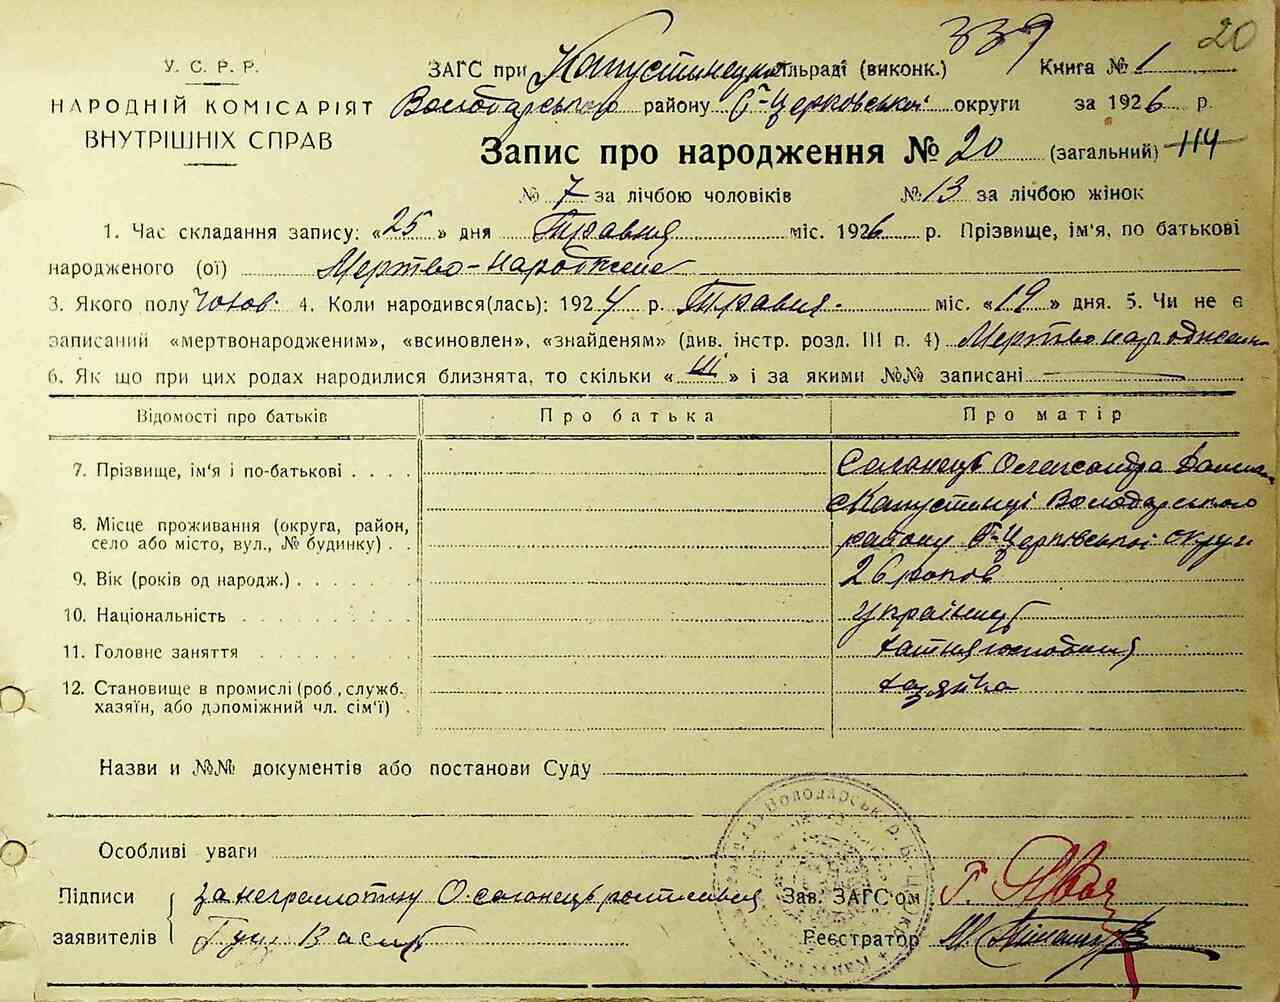 339
20
У. С. Р. Р.
НАРОДНІЙ КОМІСАРІЯТ
ВНУТРІШНІХ СПРАВ
ЗАГС при Капустинецькій сільраді (виконк.) Книга № 1
Володарського району Б-Церковської округи за 1926 р.
Запис про народження № 20 (загальний) 114
№ 7 за лічбою чоловіків № 13 за лічбою жінок
1. Час складання запису: «25» дня Травня міс. 1926 р. Прізвище, ім'я, по батькові
народженого (ої) Мертво-народжене
3. Якого полу Чолов. 4. Коли народився(лась): 1924 р. Травня міс. «19» дня. 5. Чи не є
записаний «мертвонародженим», «всиновлен», «знайденям» (див. інстр. розд. III п. 4) Мертвонароджени
6. Як що при цих родах народилися близнята, то скільки « » і за якими №№ записані
Відомості про батьків Про батька Про матір
7. Прізвище, ім'я і по-батькові Олександра
Капустинці Володарського
8. Місце проживання (округа, район,
село або місто, вул., № будинку) району Б-Церківської округи
9. Вік (років од народж.) 26 років
10. Національність українка
11. Головне заняття
12. Становище в промислі (роб., служб. хазяйка
хазяїн, або допоміжний чл. сім'ї)
Назви и №№ документів або постанови Суду
Особливі уваги
Підписи за неграмотну О.
заявителів
Зав. ЗАГС'ом
Реєстратор